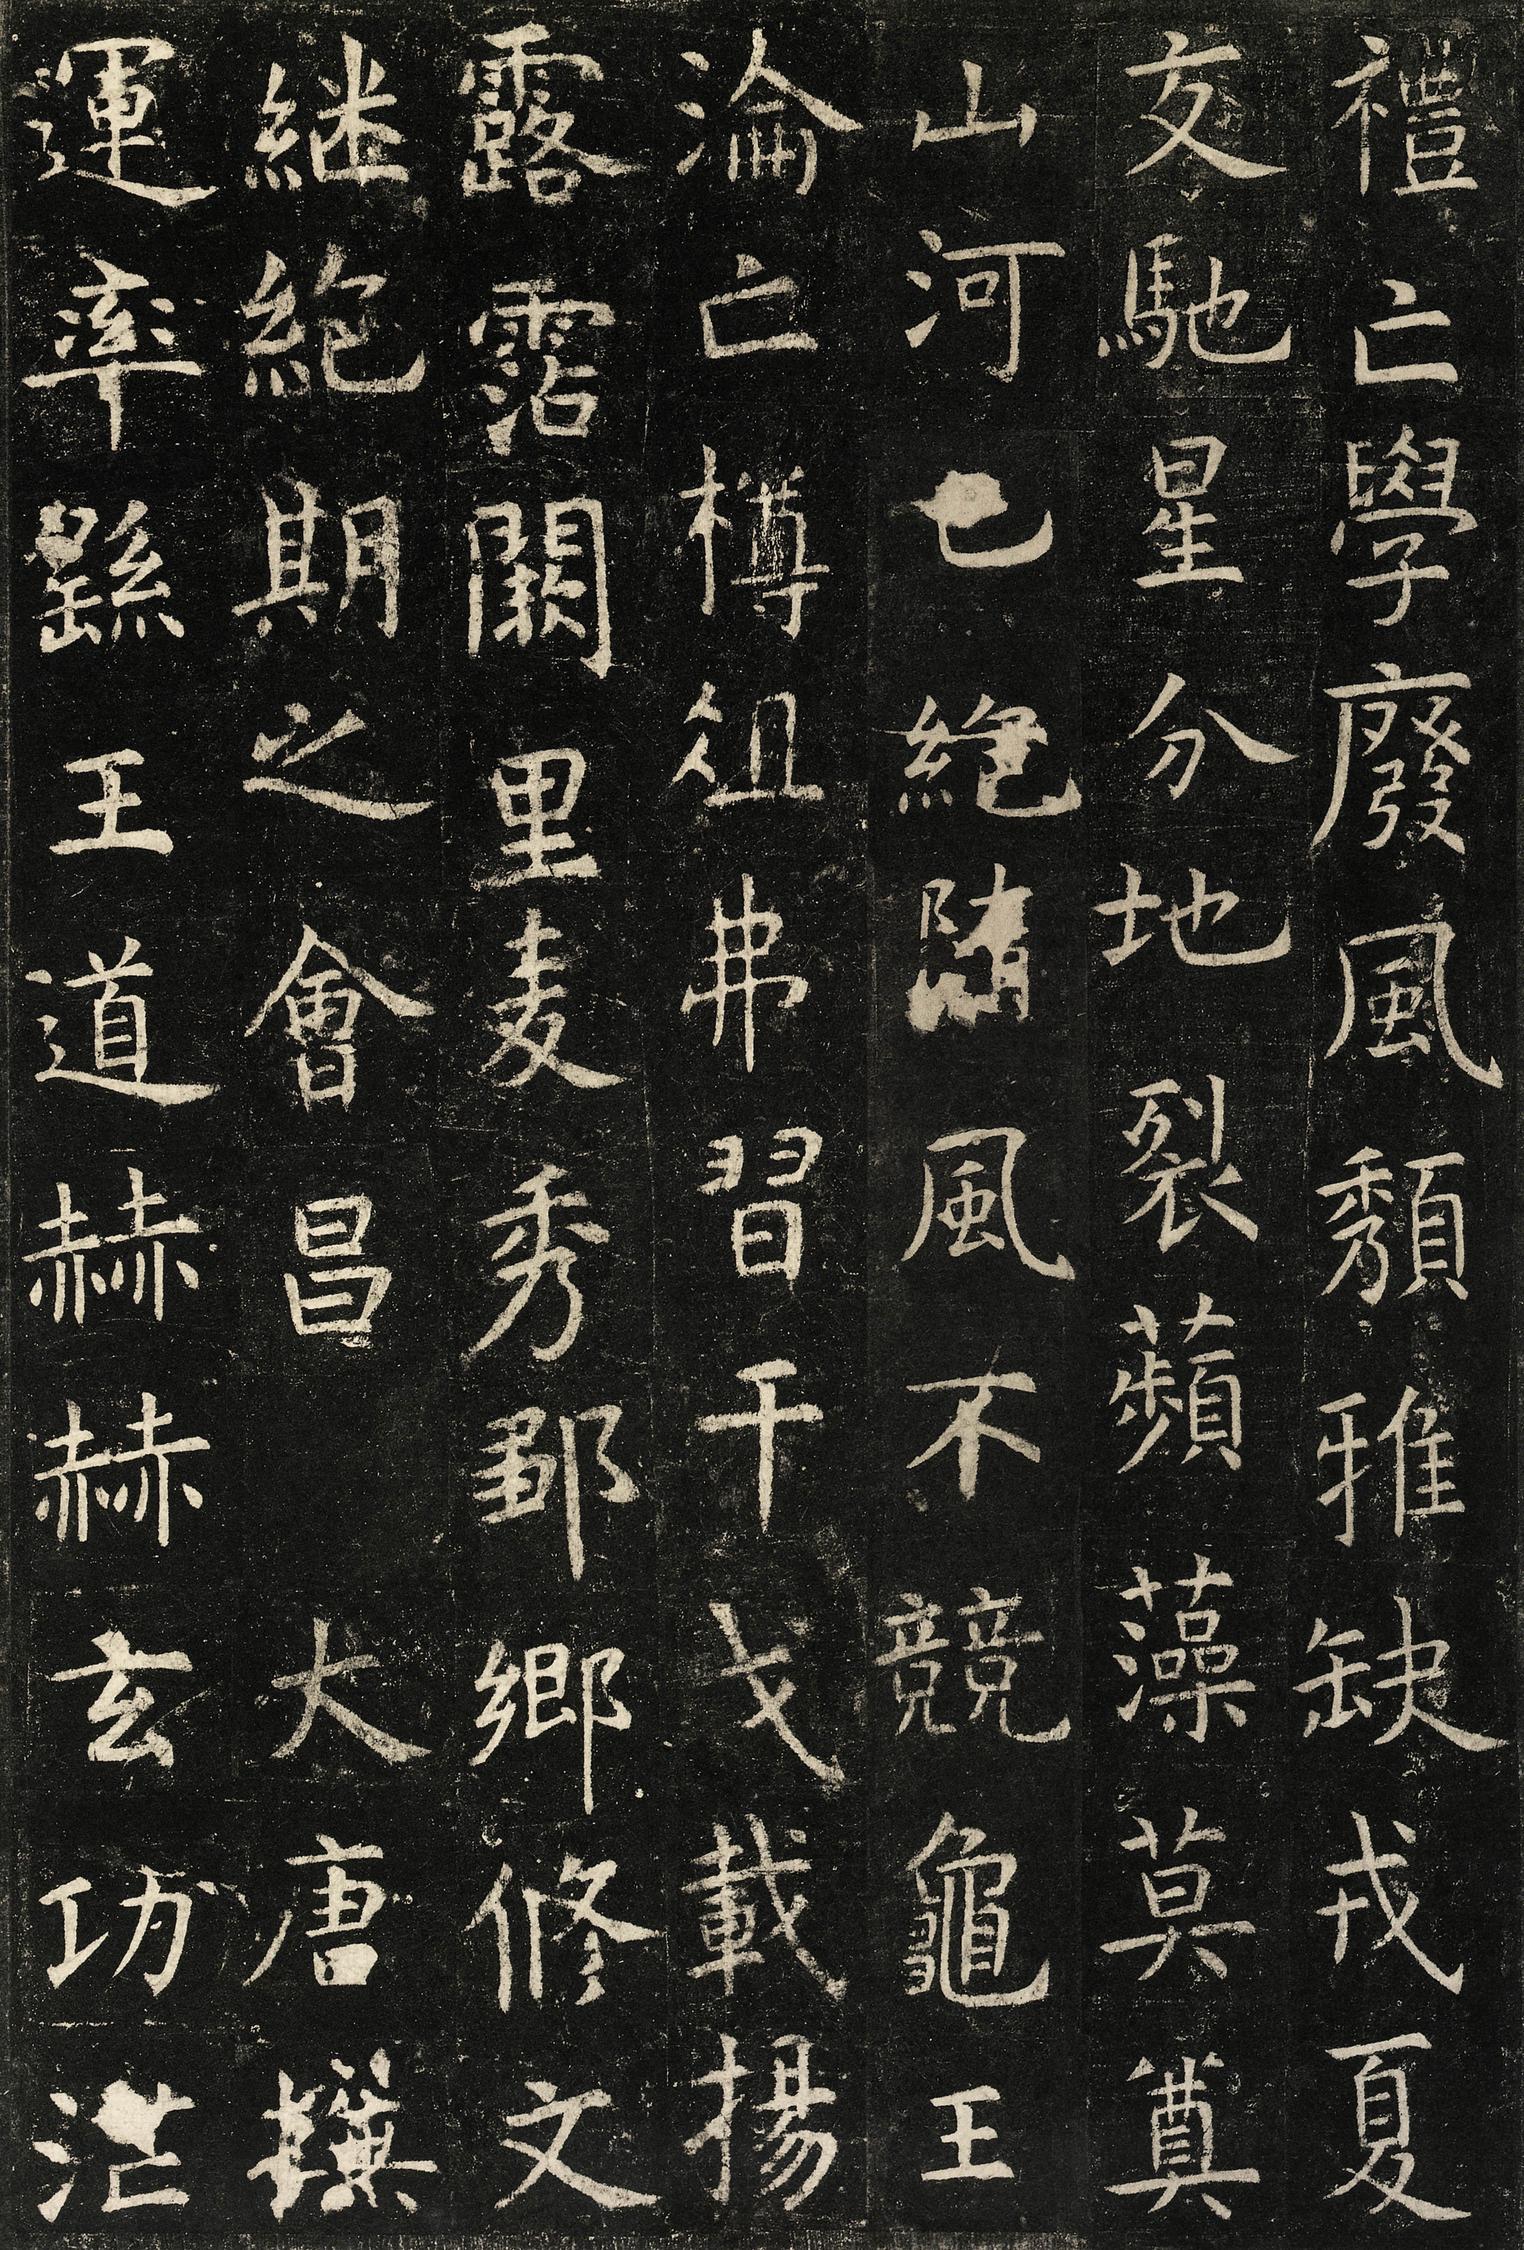 禮亡學廢風頹雅缺戎夏
交馳星分地裂蘋藻莫奠
山河已絶隨風不競龜王
淪亡樽俎弗習干戈載揚
露霑闕里麦秀鄒鄉修文
継絶期之會昌 大唐撰
運率繇王道赫赫玄功茫